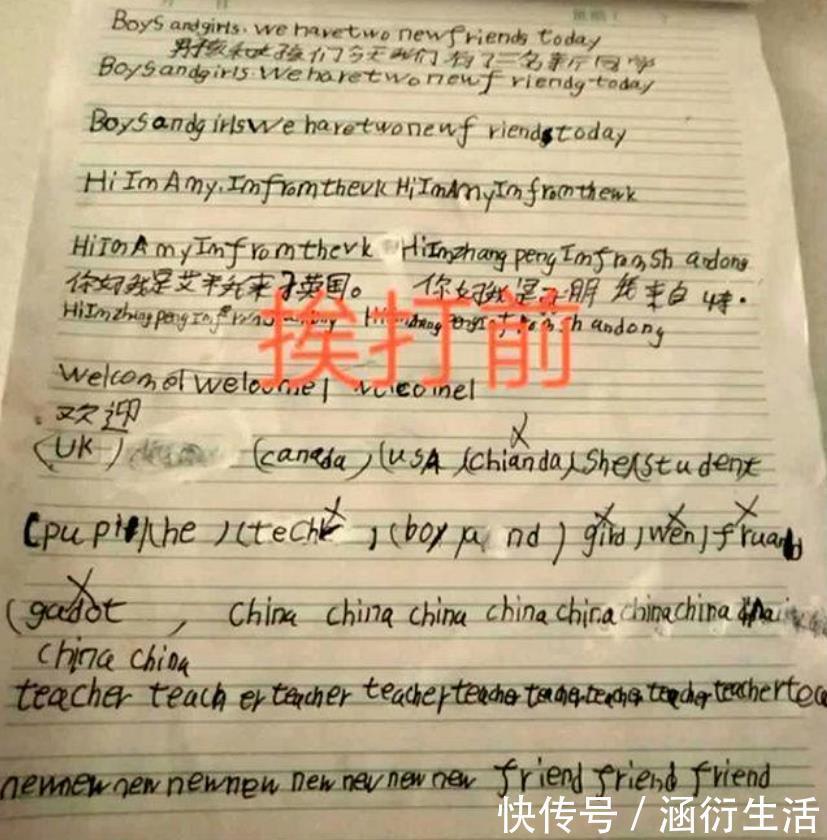 Boys andgirls. we havetwo newfriends today
男孩和女孩们今天我们有了二名新同学
Boysandgirls.Wehavetwonewf riendg today
Boysandg irlsWe havetwonewf riendstoday
Hi ImAmy.ImfromtheukHiImAmyImfromtheuk
HiImAmyImfromtheuk HiImzhang pengImfromsh andong
你好我是艾米我来于英国。 你好我是 朋 我来自
HiImzhang pengImf sh andong
Welcome!Welcome! elcome!
欢迎
(UK) (canada)(USA)(chianda)she(student
挨打前
(pu pil)he)(teche),(boy nd) gird)wen)fruand
(gadot , China china china china china chinachina
china china
teacher teach er teacher teacherteacherteacherteacherteacherteachertea
newnewnewnewnew new new new new friend friend friend
快传号/涵衍生活